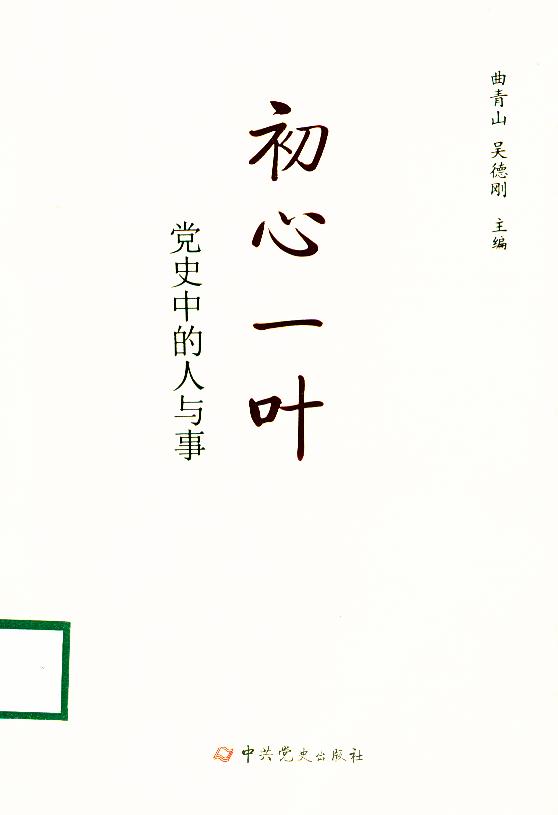 曲青山 吴德刚 主编
初心一叶
党史中的人与事
中共党史出版社